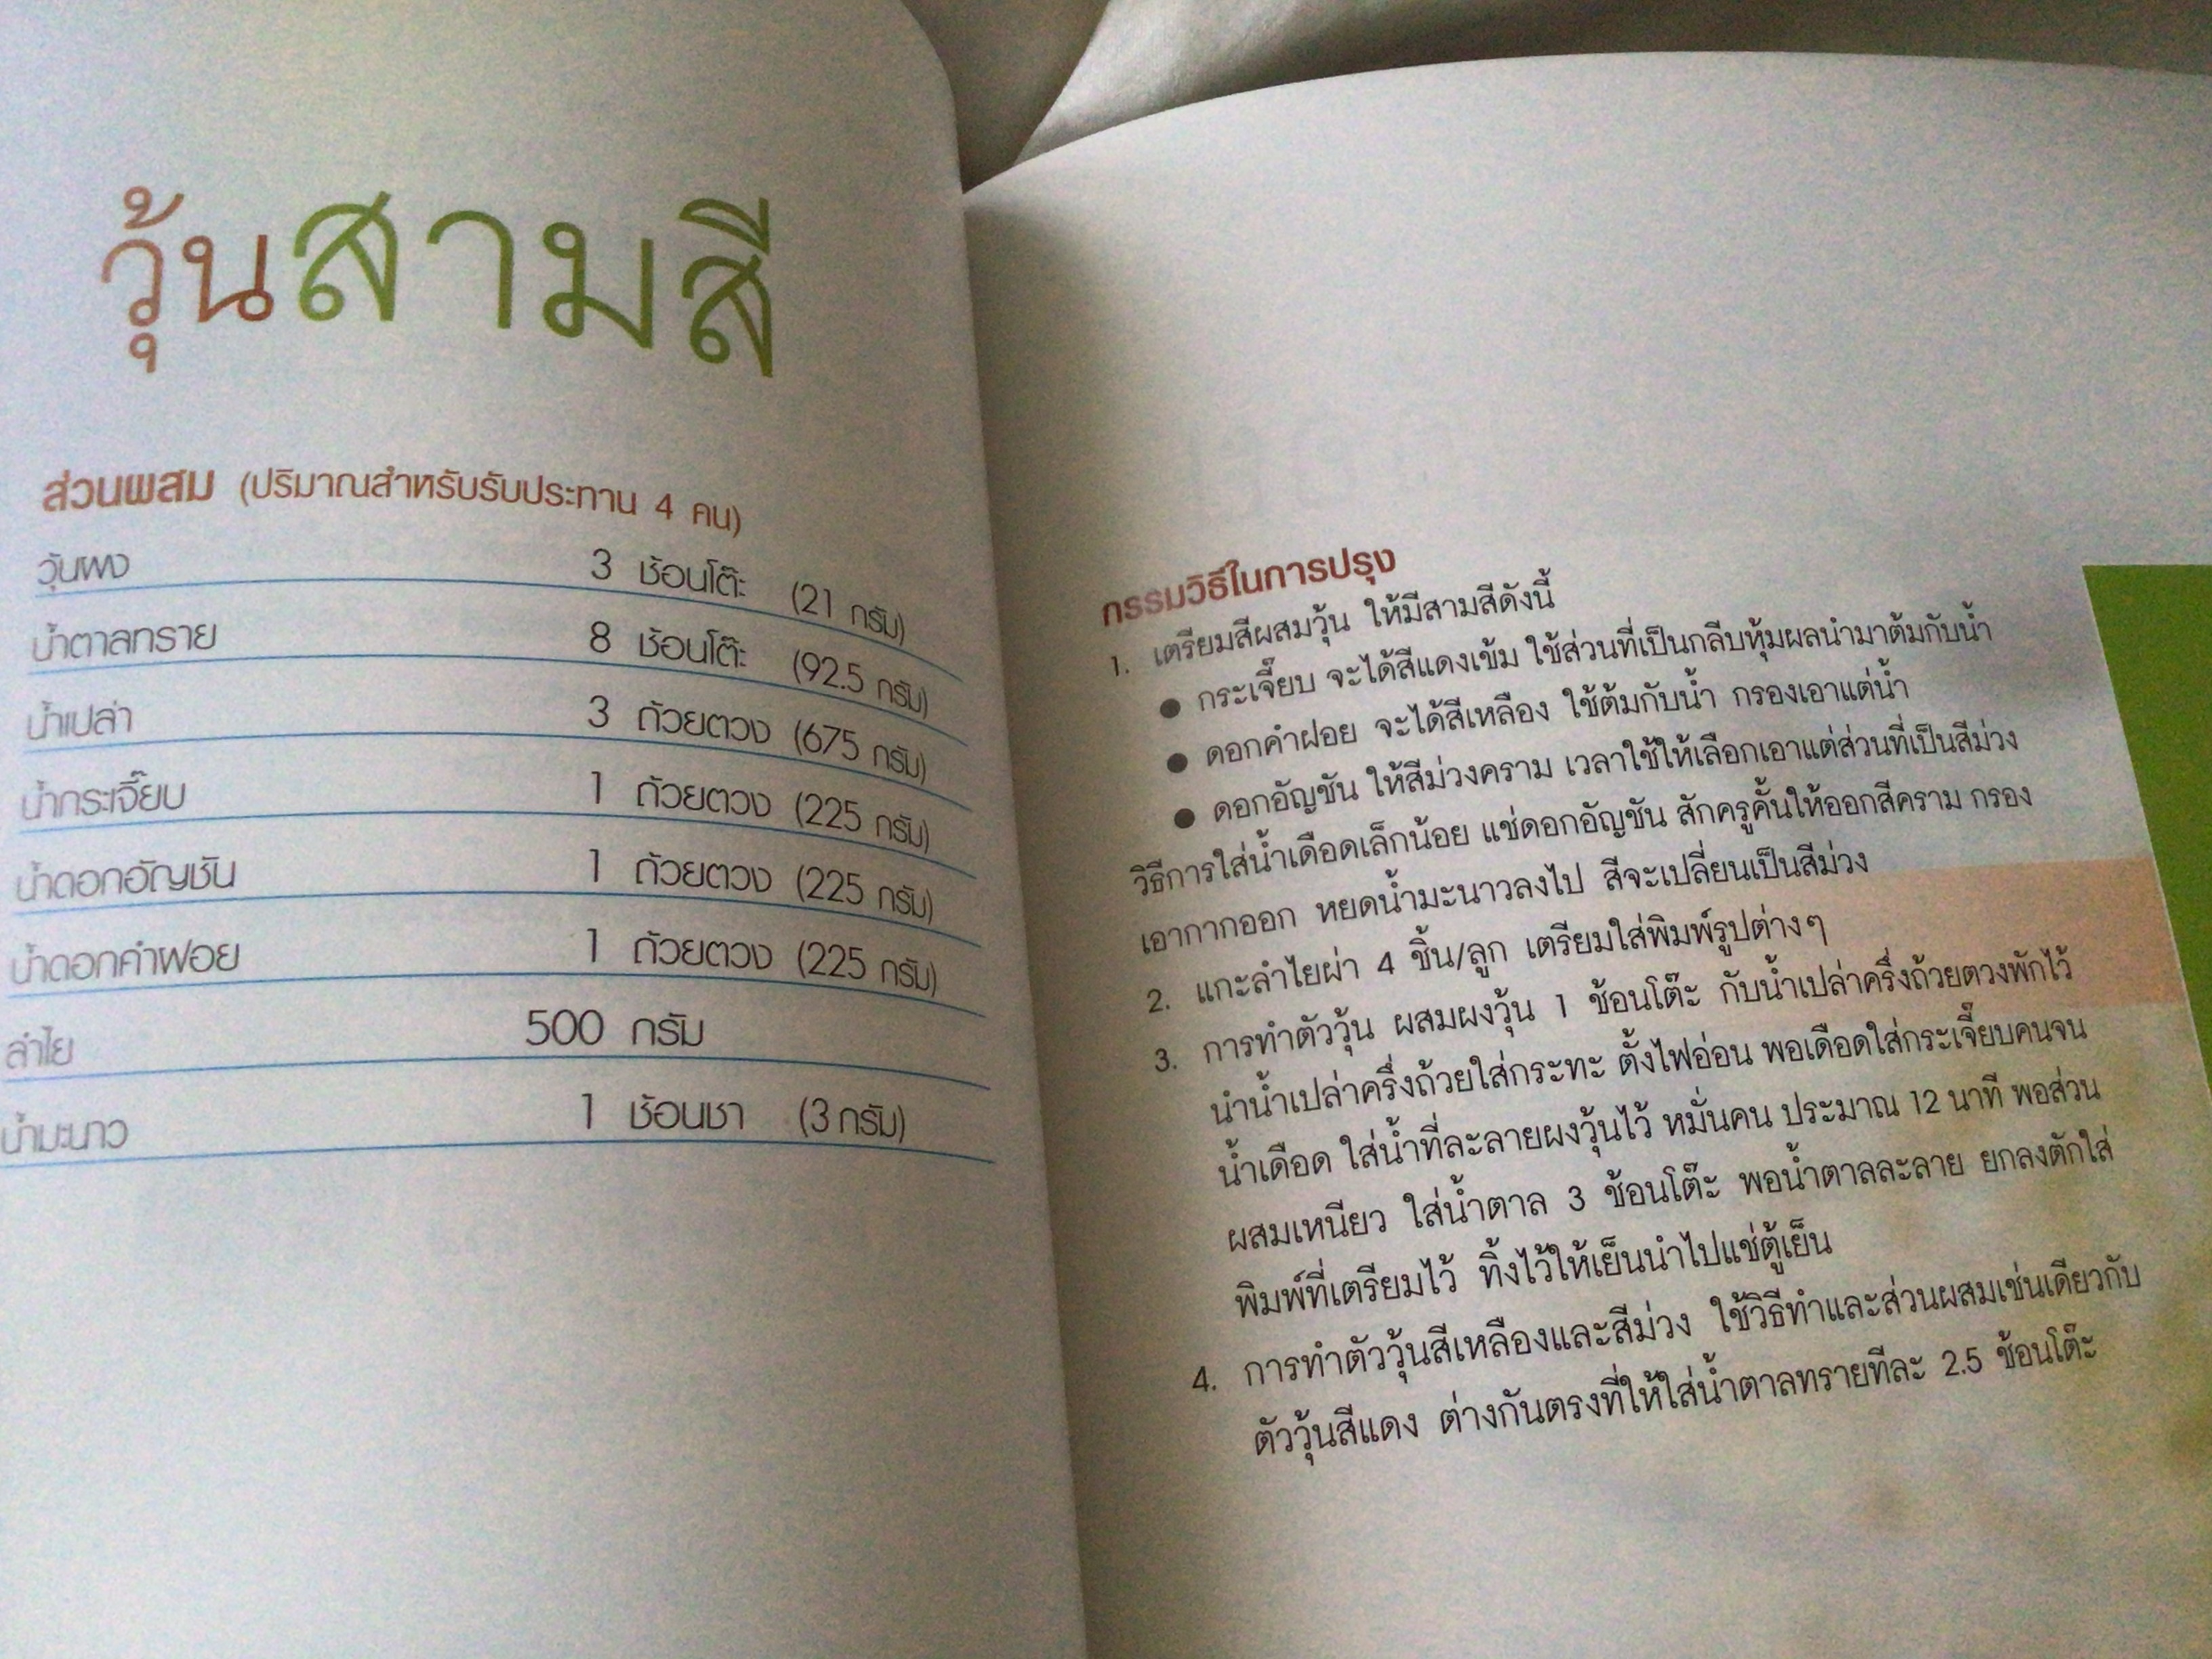 วุ้นสามสี
ส่วนผสม (ปริมาณสำหรับรับประทาน 4 คน)
วุ้นผง 3 ช้อนโต๊ะ (21 กรัม)
น้ำตาลทราย 8 ช้อนโต๊ะ (92.5 กรัม)
น้ำเปล่า 3 ถ้วยตวง (675 กรัม)
น้ำกระเจี๊ยบ 1 ถ้วยตวง (225 กรัม)
น้ำดอกอัญชัน 1 ถ้วยตวง (225 กรัม)
น้ำดอกคำฝอย 1 ถ้วยตวง (225 กรัม)
ลำไย 500 กรัม
น้ำมะนาว 1 ช้อนชา (3 กรัม)
กรรมวิธีในการปรุง
1. เตรียมสีผสมวุ้น ให้มีสามสีดังนี้
● กระเจี๊ยบ จะได้สีแดงเข้ม ใช้ส่วนที่เป็นกลีบหุ้มผลนำมาต้มกับน้ำ
● ดอกคำฝอย จะได้สีเหลือง ใช้ต้มกับน้ำ กรองเอาแต่น้ำ
● ดอกอัญชัน ให้สีม่วงคราม เวลาใช้ให้เลือกเอาแต่ส่วนที่เป็นสีม่วง
วิธีการใส่น้ำเดือดเล็กน้อย แช่ดอกอัญชัน สักครู่คั้นให้ออกสีคราม กรอง
เอากากออก หยดน้ำมะนาวลงไป สีจะเปลี่ยนเป็นสีม่วง
2. แกะลำไยผ่า 4 ชิ้น/ลูก เตรียมใส่พิมพ์รูปต่างๆ
3. การทำตัววุ้น ผสมผงวุ้น 1 ช้อนโต๊ะ กับน้ำเปล่าครึ่งถ้วยตวงพักไว้
นำน้ำเปล่าครึ่งถ้วยใส่กระทะ ตั้งไฟอ่อน พอเดือดใส่กระเจี๊ยบคนจน
น้ำเดือด ใส่น้ำที่ละลายผงวุ้นไว้ หมั่นคน ประมาณ 12 นาที พอส่วน
ผสมเหนียว ใส่น้ำตาล 3 ช้อนโต๊ะ พอน้ำตาลละลาย ยกลงตักใส่
พิมพ์ที่เตรียมไว้ ทิ้งไว้ให้เย็นนำไปแช่ตู้เย็น
4. การทำตัววุ้นสีเหลืองและสีม่วง ใช้วิธีทำและส่วนผสมเช่นเดียวกับ
ตัววุ้นสีแดง ต่างกันตรงที่ให้ใส่น้ำตาลทรายทีละ 2.5 ช้อนโต๊ะ